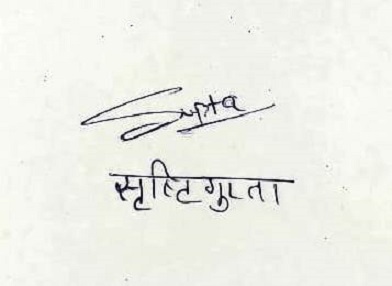 Gupta
सृष्टि गुप्ता